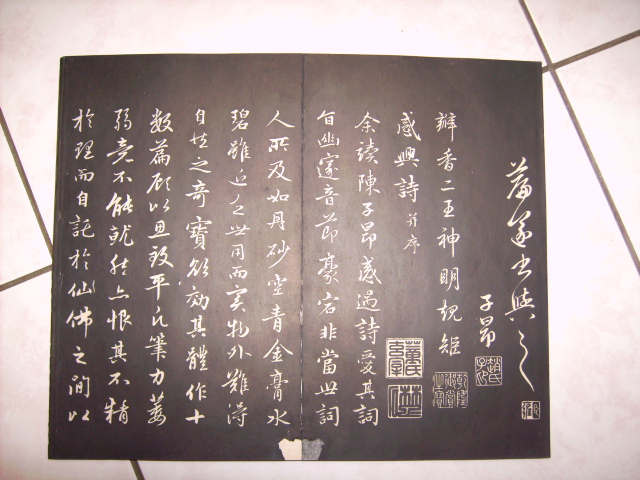 書與之
子昂
趙氏子昂
瓣香二王神明規矩
感興詩 并序
余讀陳子昂感遇詩愛其詞
旨幽邃音節豪宕非當世詞
人所及如丹砂空青金膏水
碧雖近乏世用而實物外難得
自然之奇寶欲效其體作十
數篇顧以思致平凡筆力萎
弱竟不能就然亦恨其不精
於理而自託於仙佛之間以